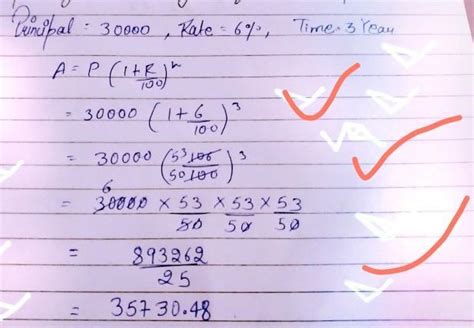 Principal = 30000, Rate = 6%, Time = 3 Year
A = P (1+R/100)^n
= 30000 (1+6/100)^3
= 30000 (53 106/50 100)^3
= 6 30000 × 53/50 × 53/50 × 53/50
= 893262/25
= 35730.48